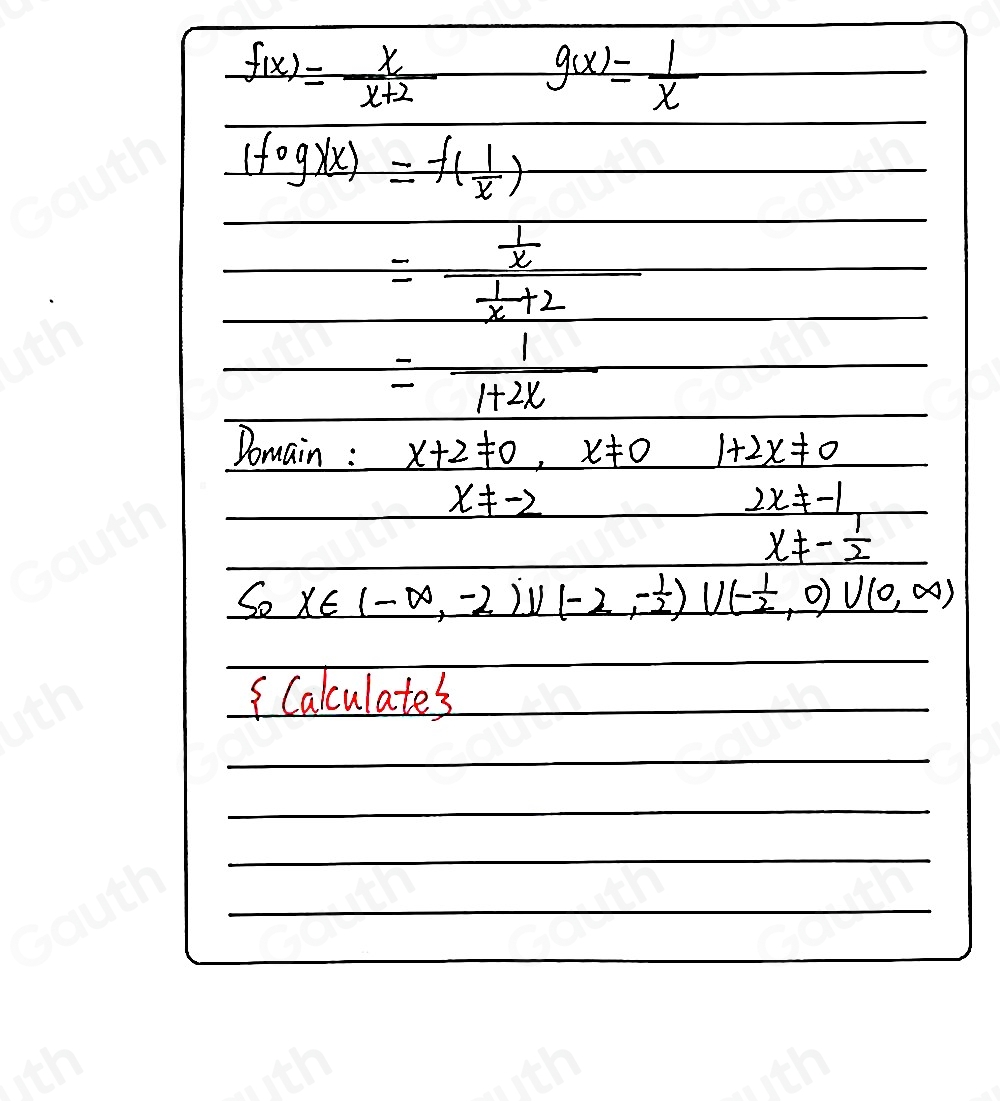 f(x) = x/(x+2) g(x) = 1/x
(f∘g)(x) = f(1/x)
= (1/x)/(1/x+2)
= 1/(1+2x)
Domain : x+2≠0, x≠0 1+2x≠0
x≠-2 2x≠-1
x≠-1/2
So x∈(-∞,-2)∪(-2,-1/2)∪(-1/2,0)∪(0,∞)
{Calculate}
Gauth